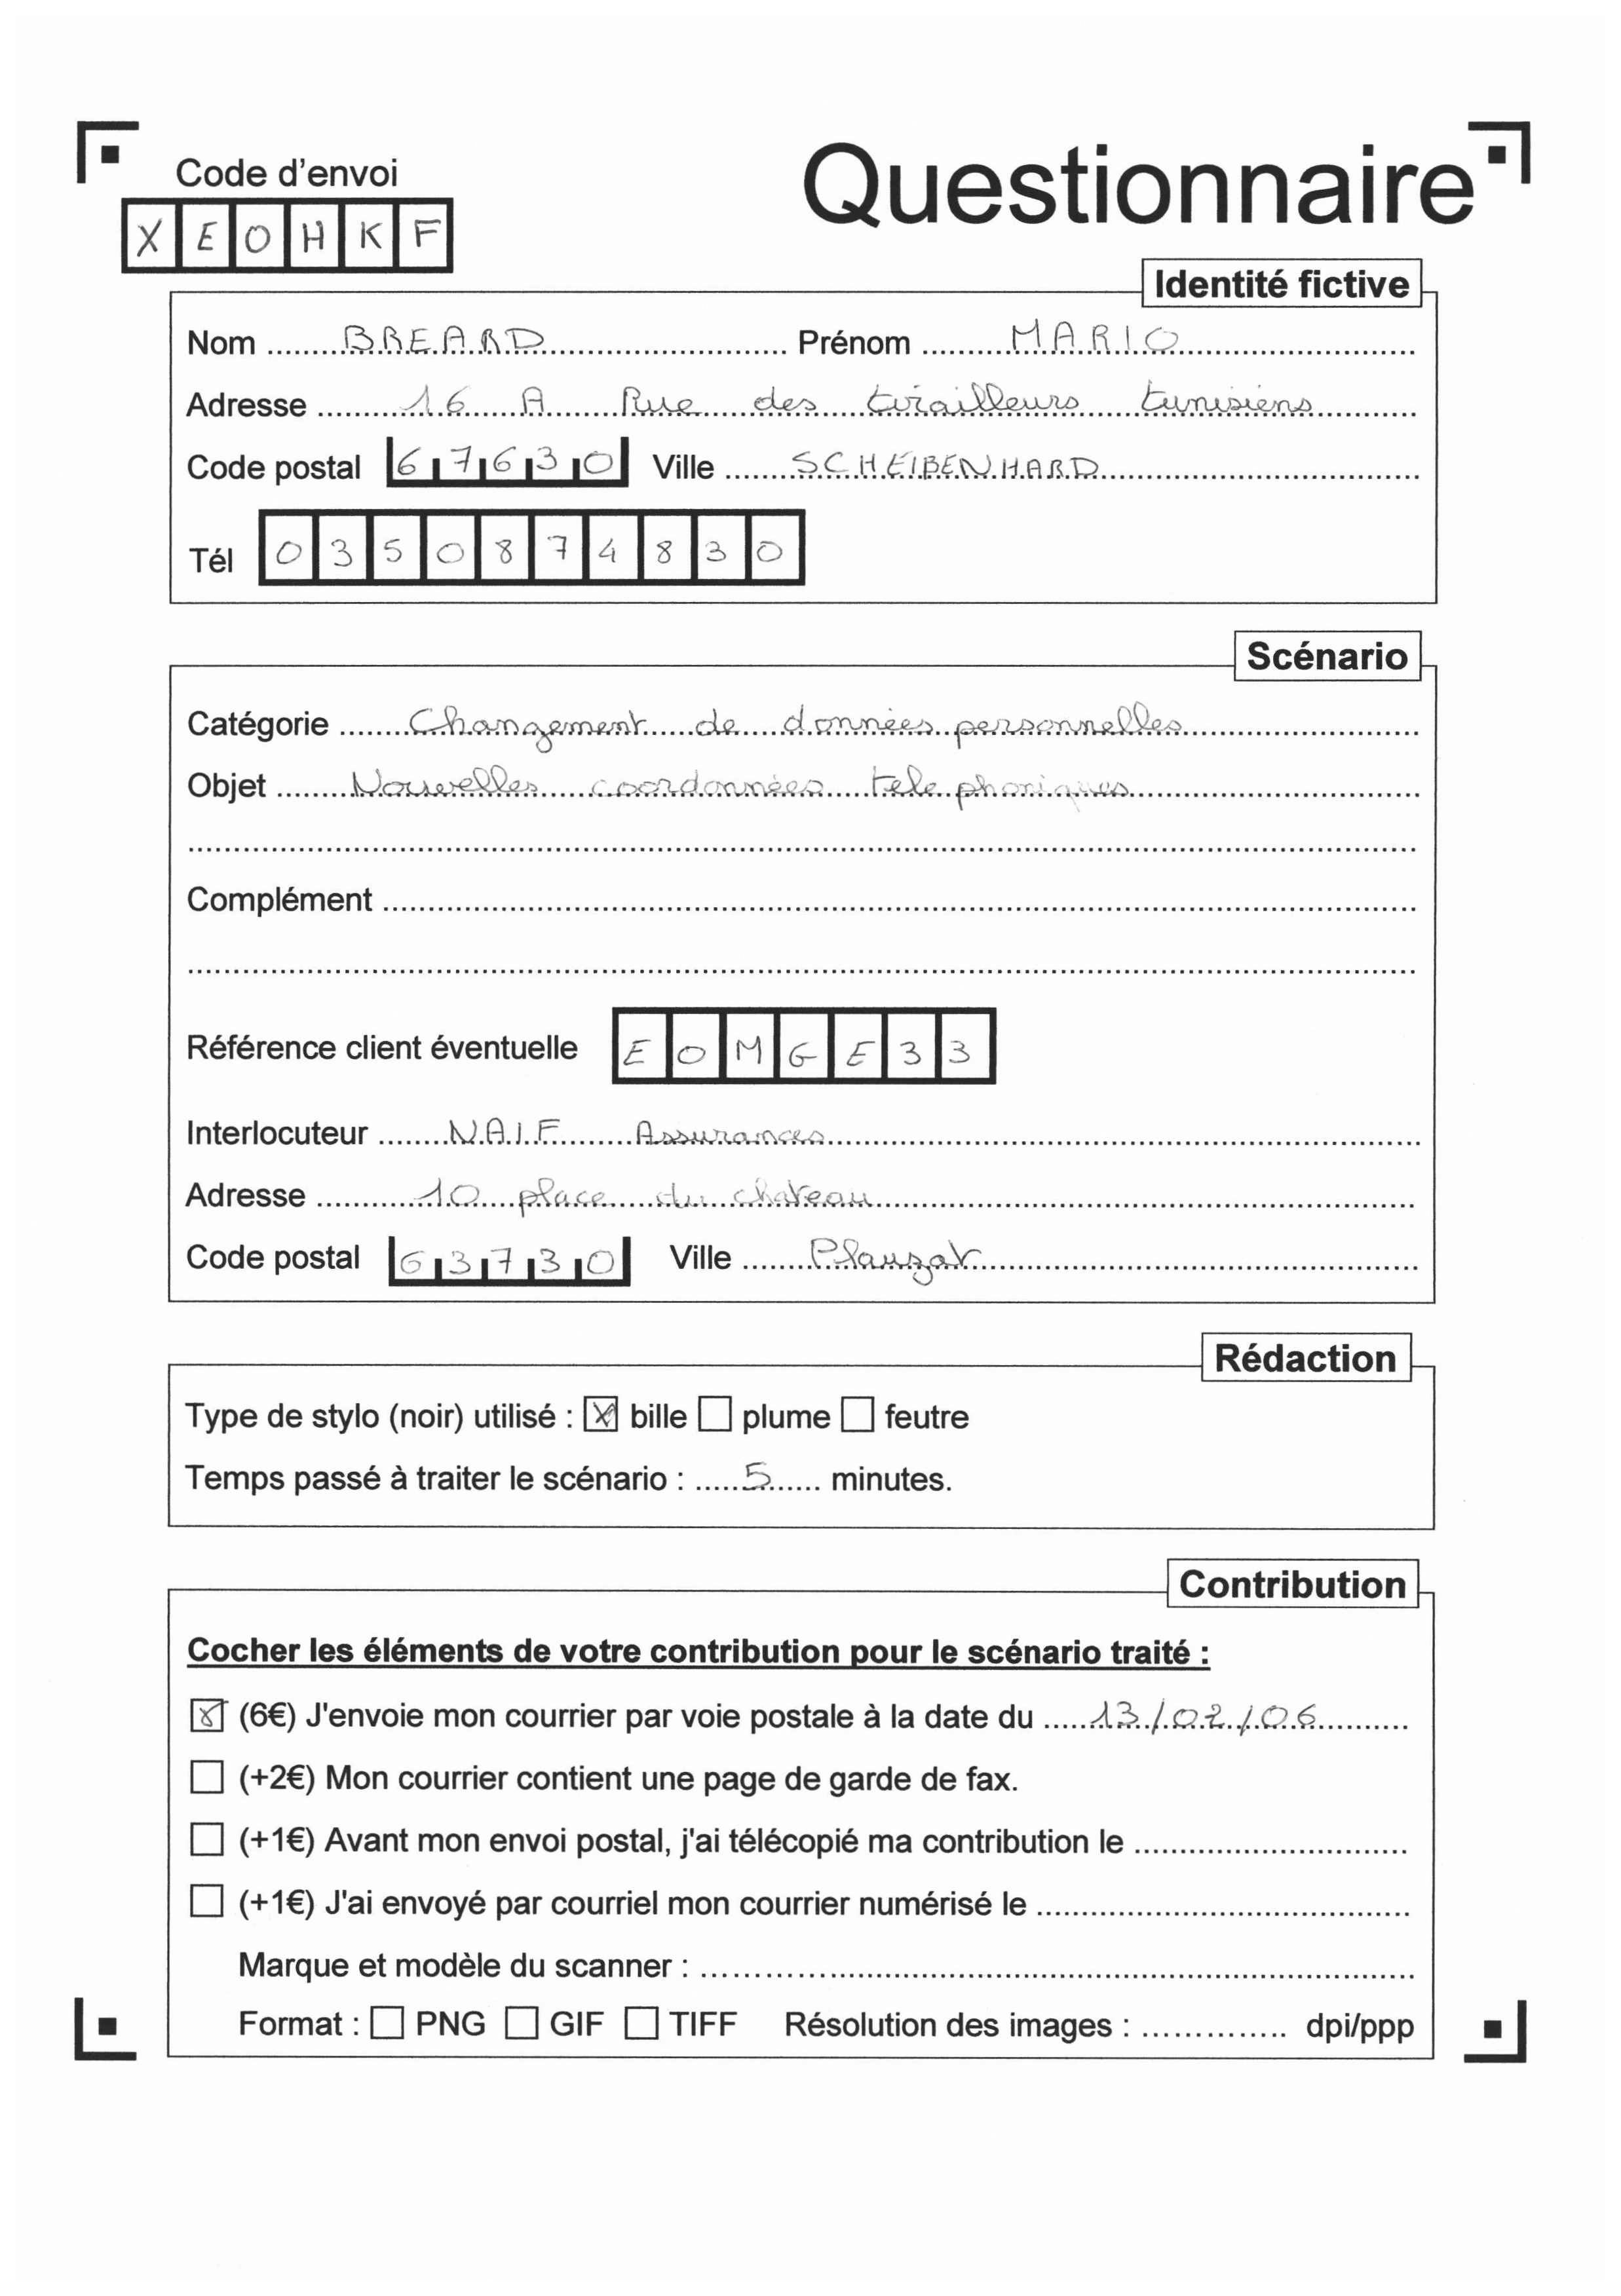 Code d'envoi
Questionnaire
XEOHKF
Identité fictive
Nom BREARD Prénom MARIO
Adresse 16 A Rue des tirailleurs tunisiens
Code postal 67630 Ville SCHEIBENHARD
Tél 0350874830
Scénario
Catégorie Changement de données personnelles
Objet Nouvelles coordonnées telephoniques
Complément
Référence client éventuelle EOMGE33
Interlocuteur NAIF Assurances
Adresse 10 place du chateau
Code postal 63730 Ville Plauzat
Rédaction
Type de stylo (noir) utilisé : ☒ bille ☐ plume ☐ feutre
Temps passé à traiter le scénario : 5 minutes.
Contribution
Cocher les éléments de votre contribution pour le scénario traité :
☒ (6€) J'envoie mon courrier par voie postale à la date du 13/02/06
☐ (+2€) Mon courrier contient une page de garde de fax.
☐ (+1€) Avant mon envoi postal, j'ai télécopié ma contribution le
☐ (+1€) J'ai envoyé par courriel mon courrier numérisé le
Marque et modèle du scanner :
Format : ☐ PNG ☐ GIF ☐ TIFF Résolution des images : dpi/ppp